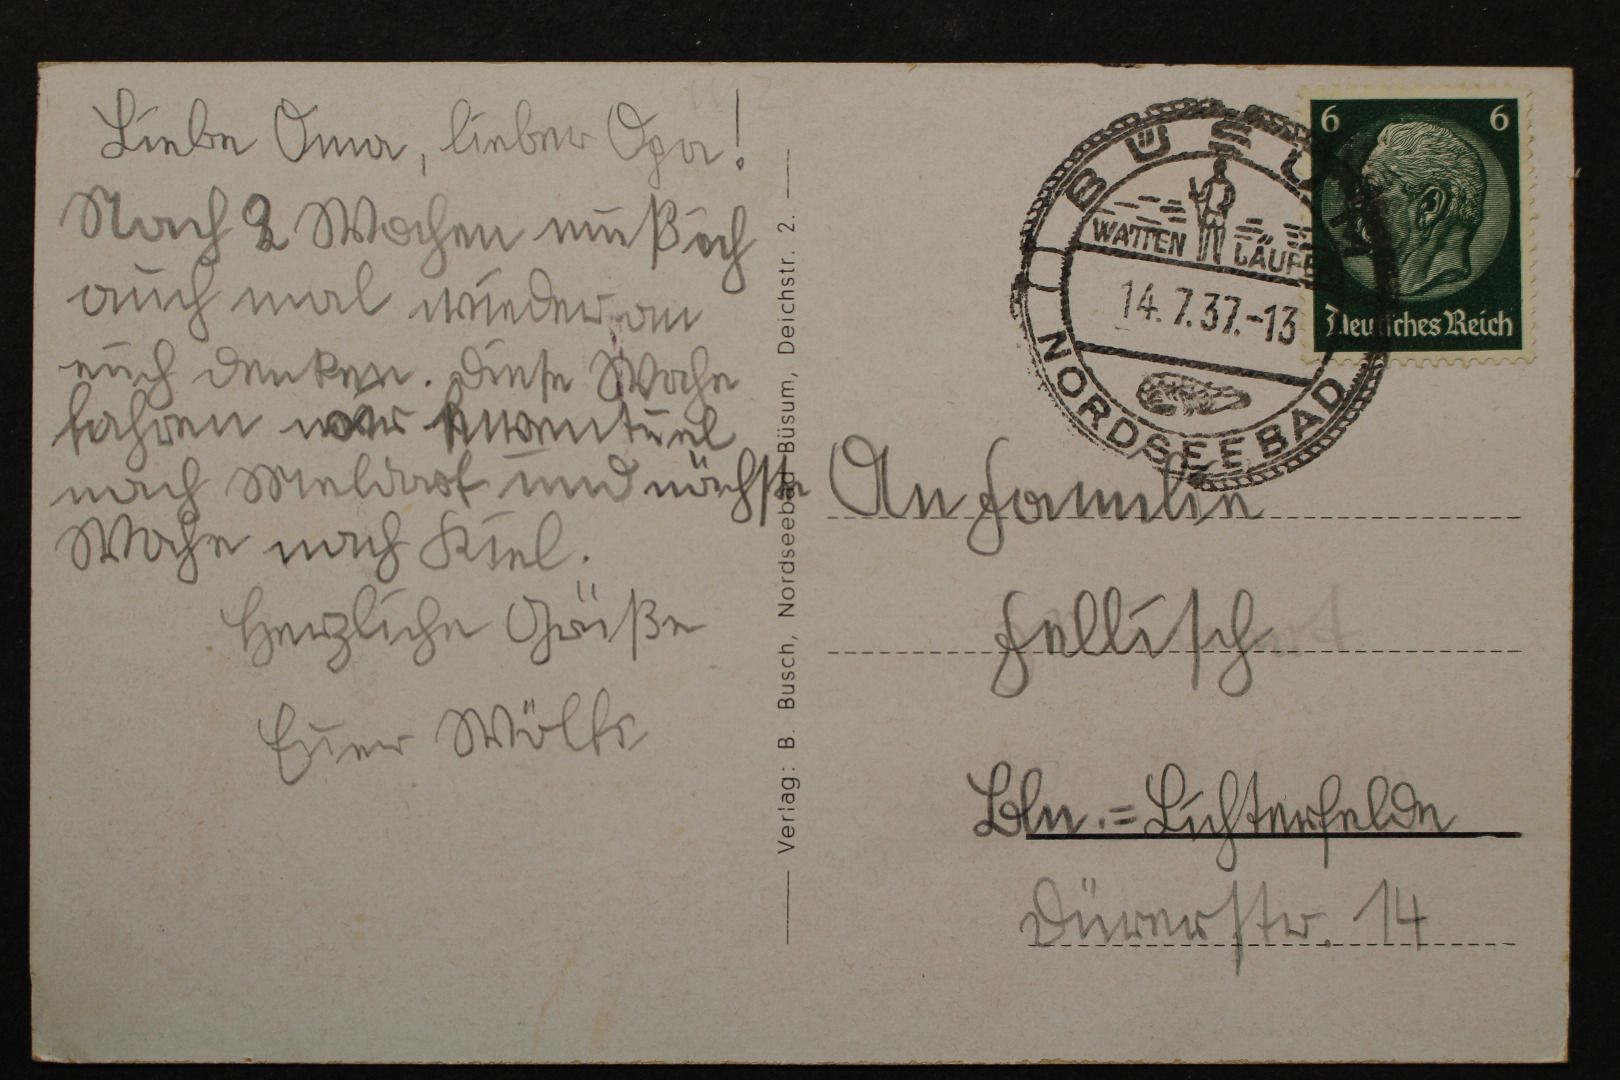 Liebe Oma, lieber Opa!
Nach 2 Wochen muß ich
auch mal wieder an
euch denken. Diese Woche
fahren wir eventuel
nach Meldorf und nächste
Woche nach Kiel.
Herzliche Grüße
Euer Wölfi
Verlag: B. Busch, Nordseebad Büsum, Deichstr. 2.
BÜSUM
WATTEN LÄUFER
14.7.37.-13
NORDSEEBAD
6 6
Deutsches Reich
An Familie
Fellisch
Bln.=Lichterfelde
Dürerstr. 14